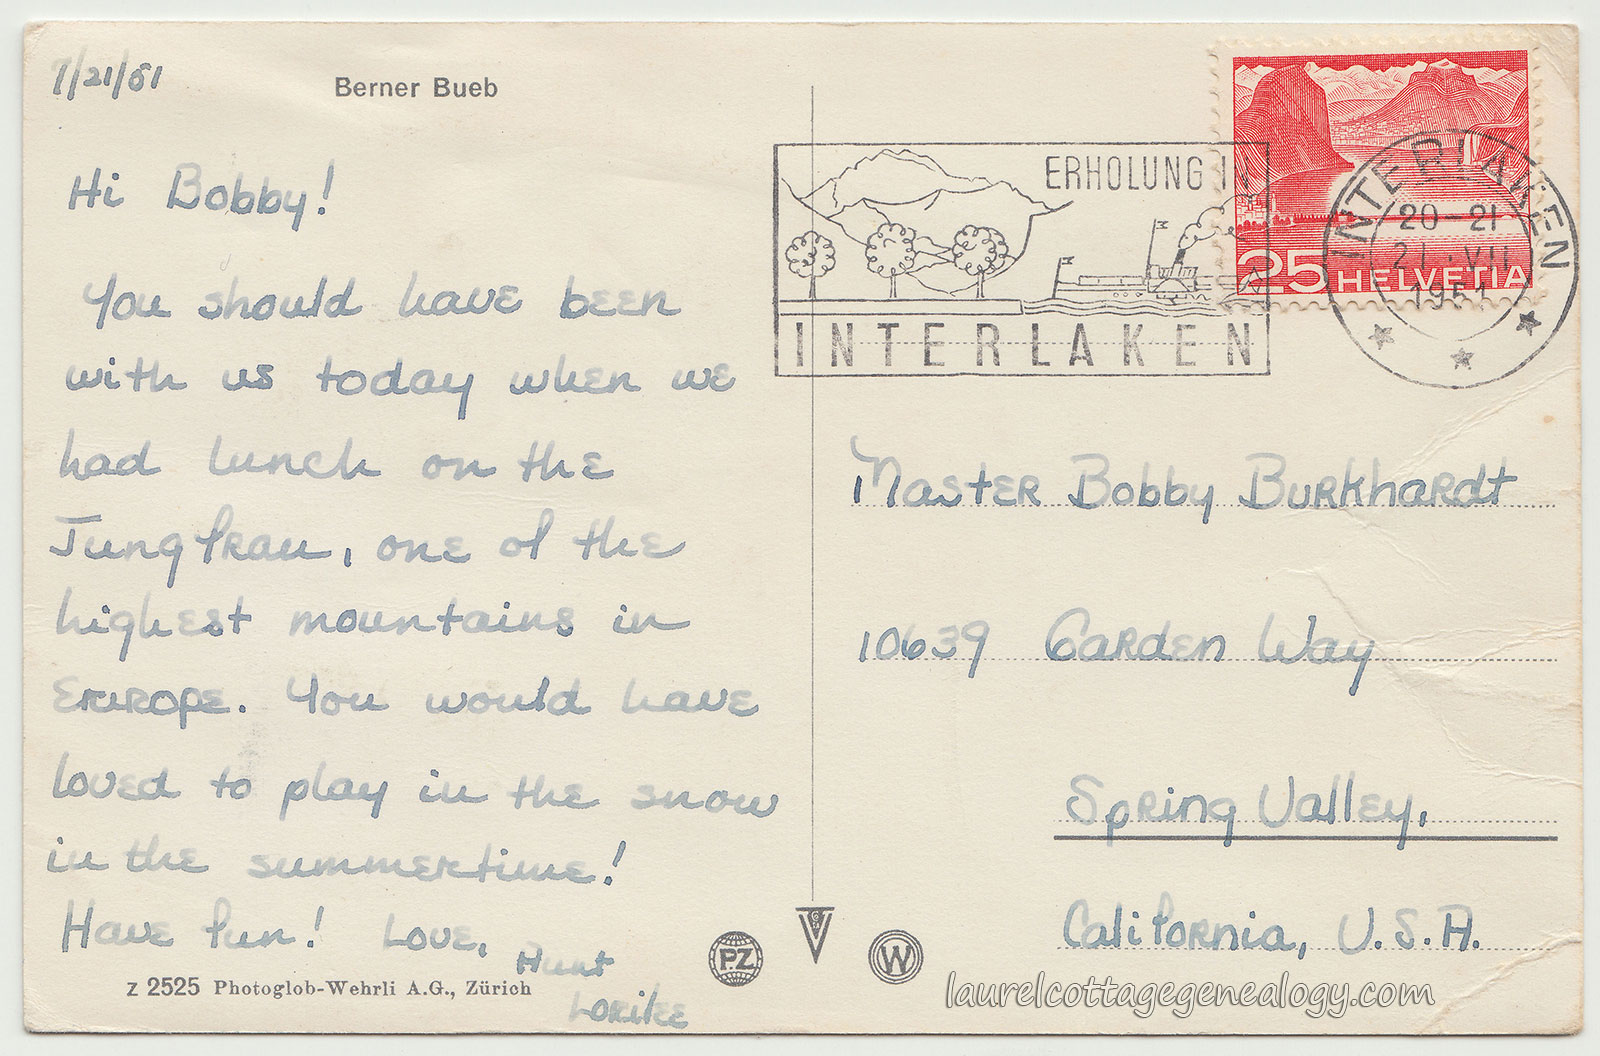 7/21/51
Berner Bueb
Hi Bobby!
You should have been
with us today when we
had lunch on the
Jungfrau, one of the
highest mountains in
Europe. You would have
loved to play in the snow
in the summertime!
Have fun! Love,
Hunt
Lorilee
z 2525 Photoglob-Wehrli A.G., Zürich
P.Z
W
ERHOLUNG IN
INTERLAKEN
25 HELVETIA
INTERLAKEN
20-21
21.VII
1951
Master Bobby Burkhardt
10639 Garden Way
Spring Valley,
California, U.S.A.
laurelcottagegenealogy.com